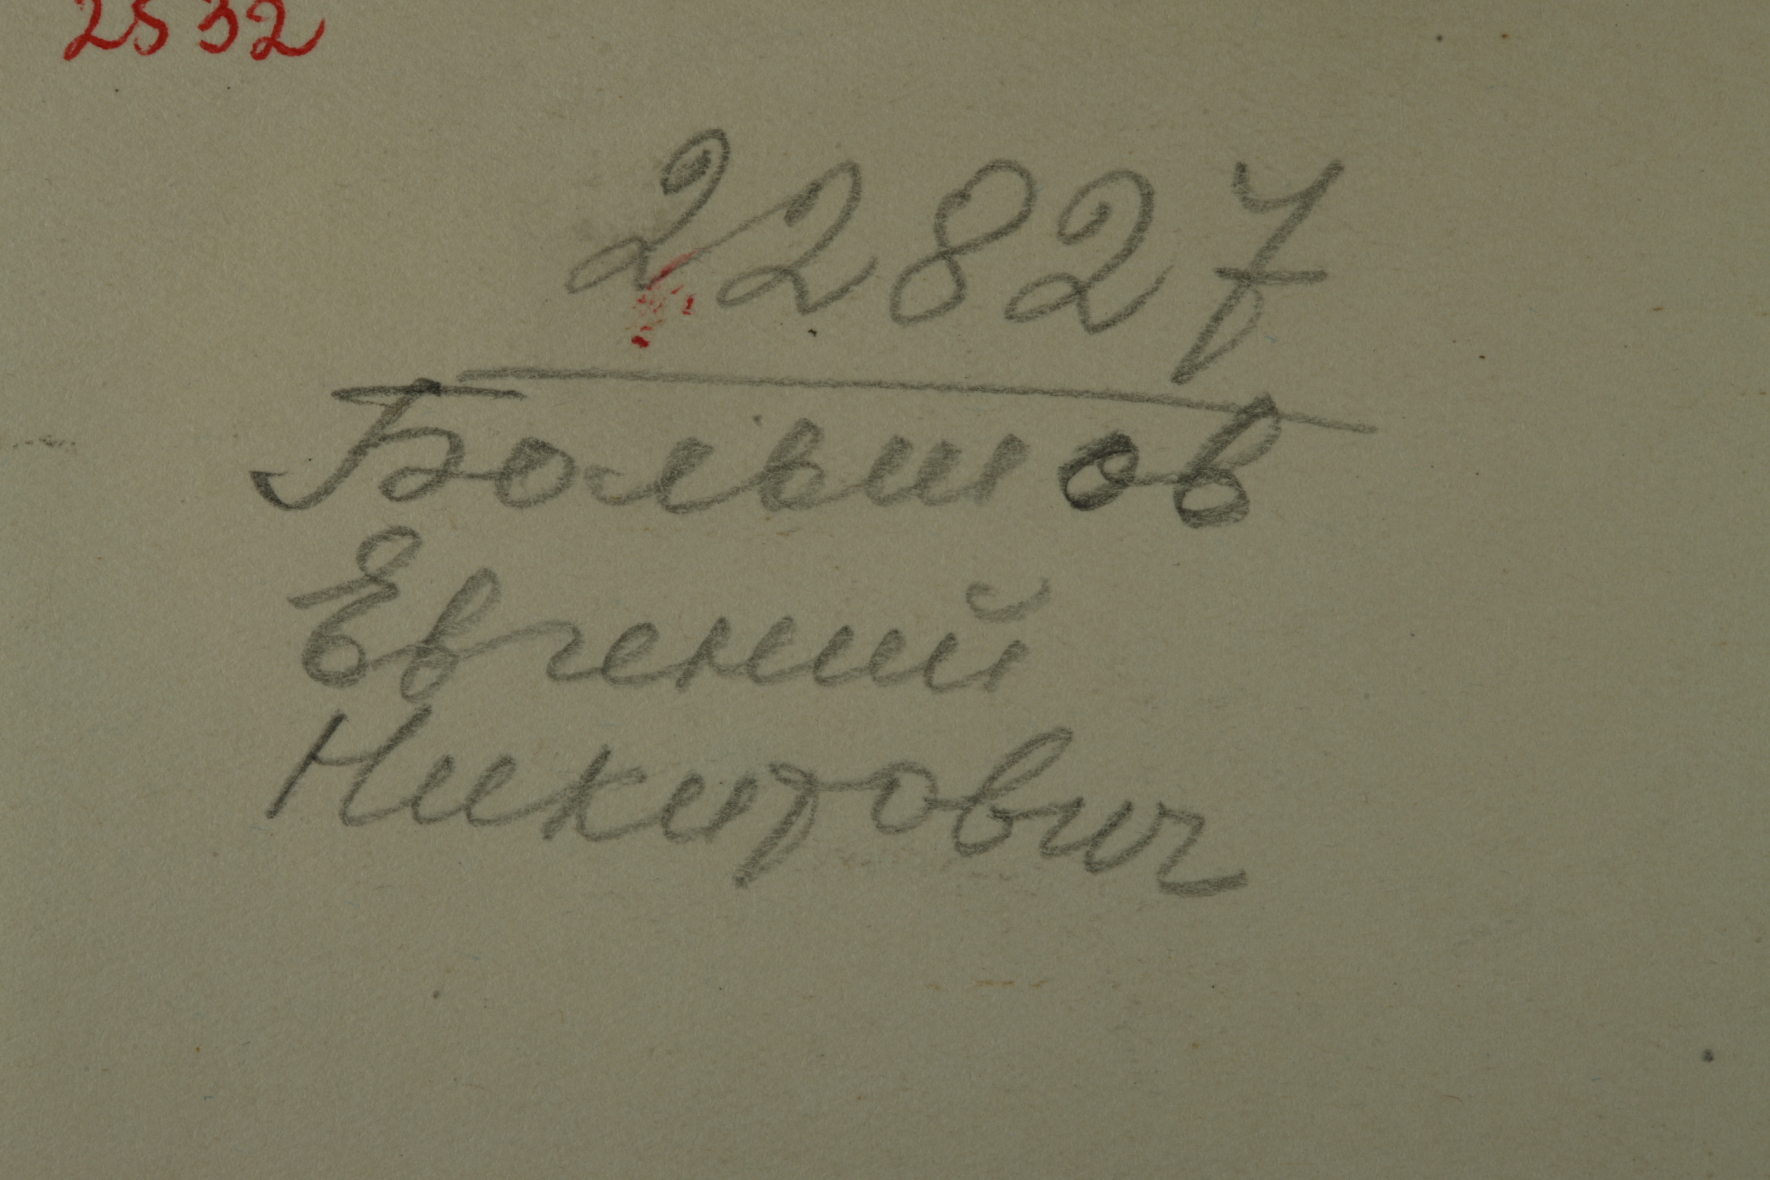 2532
22827
Большов
Евгений
Никитович